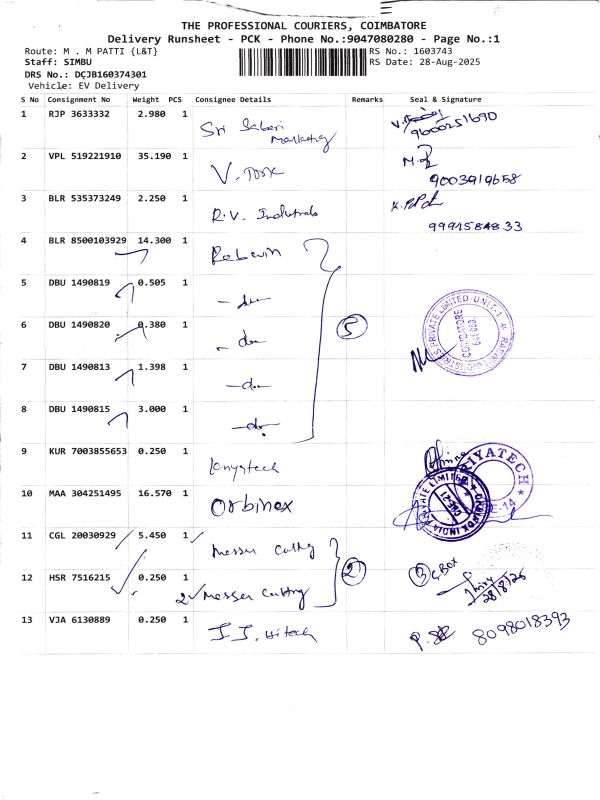 THE PROFESSIONAL COURIERS, COIMBATORE
Delivery Runsheet - PCK - Phone No.:9047080280 - Page No.:1
Route: M . M PATTI {L&T} RS No.: 1603743
Staff: SIMBU RS Date: 28-Aug-2025
DRS No.: DCJB160374301
Vehicle: EV Delivery
S No Consignment No Weight PCS Consignee Details Remarks Seal & Signature
1 RJP 3633332 2.980 1 Sri Sabari Marketing 9600251690
2 VPL 519221910 35.190 1 V. 9003919658
3 BLR 535373249 2.250 1 R.V. Industrials
4 BLR 8500103929 14.300 1
5 DBU 1490819 0.505 1 - do
6 DBU 1490820 0.380 1 - do 5
7 DBU 1490813 1.398 1 - do
8 DBU 1490815 3.000 1 - do
9 KUR 7003855653 0.250 1
10 MAA 304251495 16.570 1 Orbinox
11 CGL 20030929 5.450 1 Messer Cutting
12 HSR 7516215 0.250 1 2 Messer Cutting 2 3 C.Box 28/8/25
13 VJA 6130889 0.250 1 8098018393